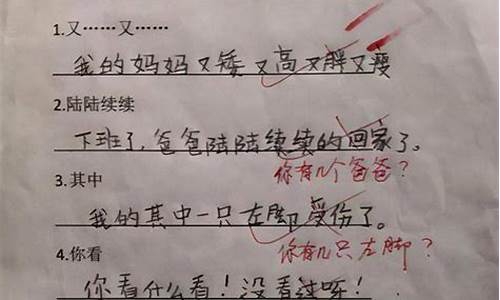 1.又……又……
我的妈妈又矮又高又胖又瘦
2.陆陆续续
下班了,爸爸陆陆续续的回家了。
你有几个爸爸?
3.其中
我的其中一只左脚受伤了。
你有几只左脚?
4.你看
你看什么看!没看过呀!